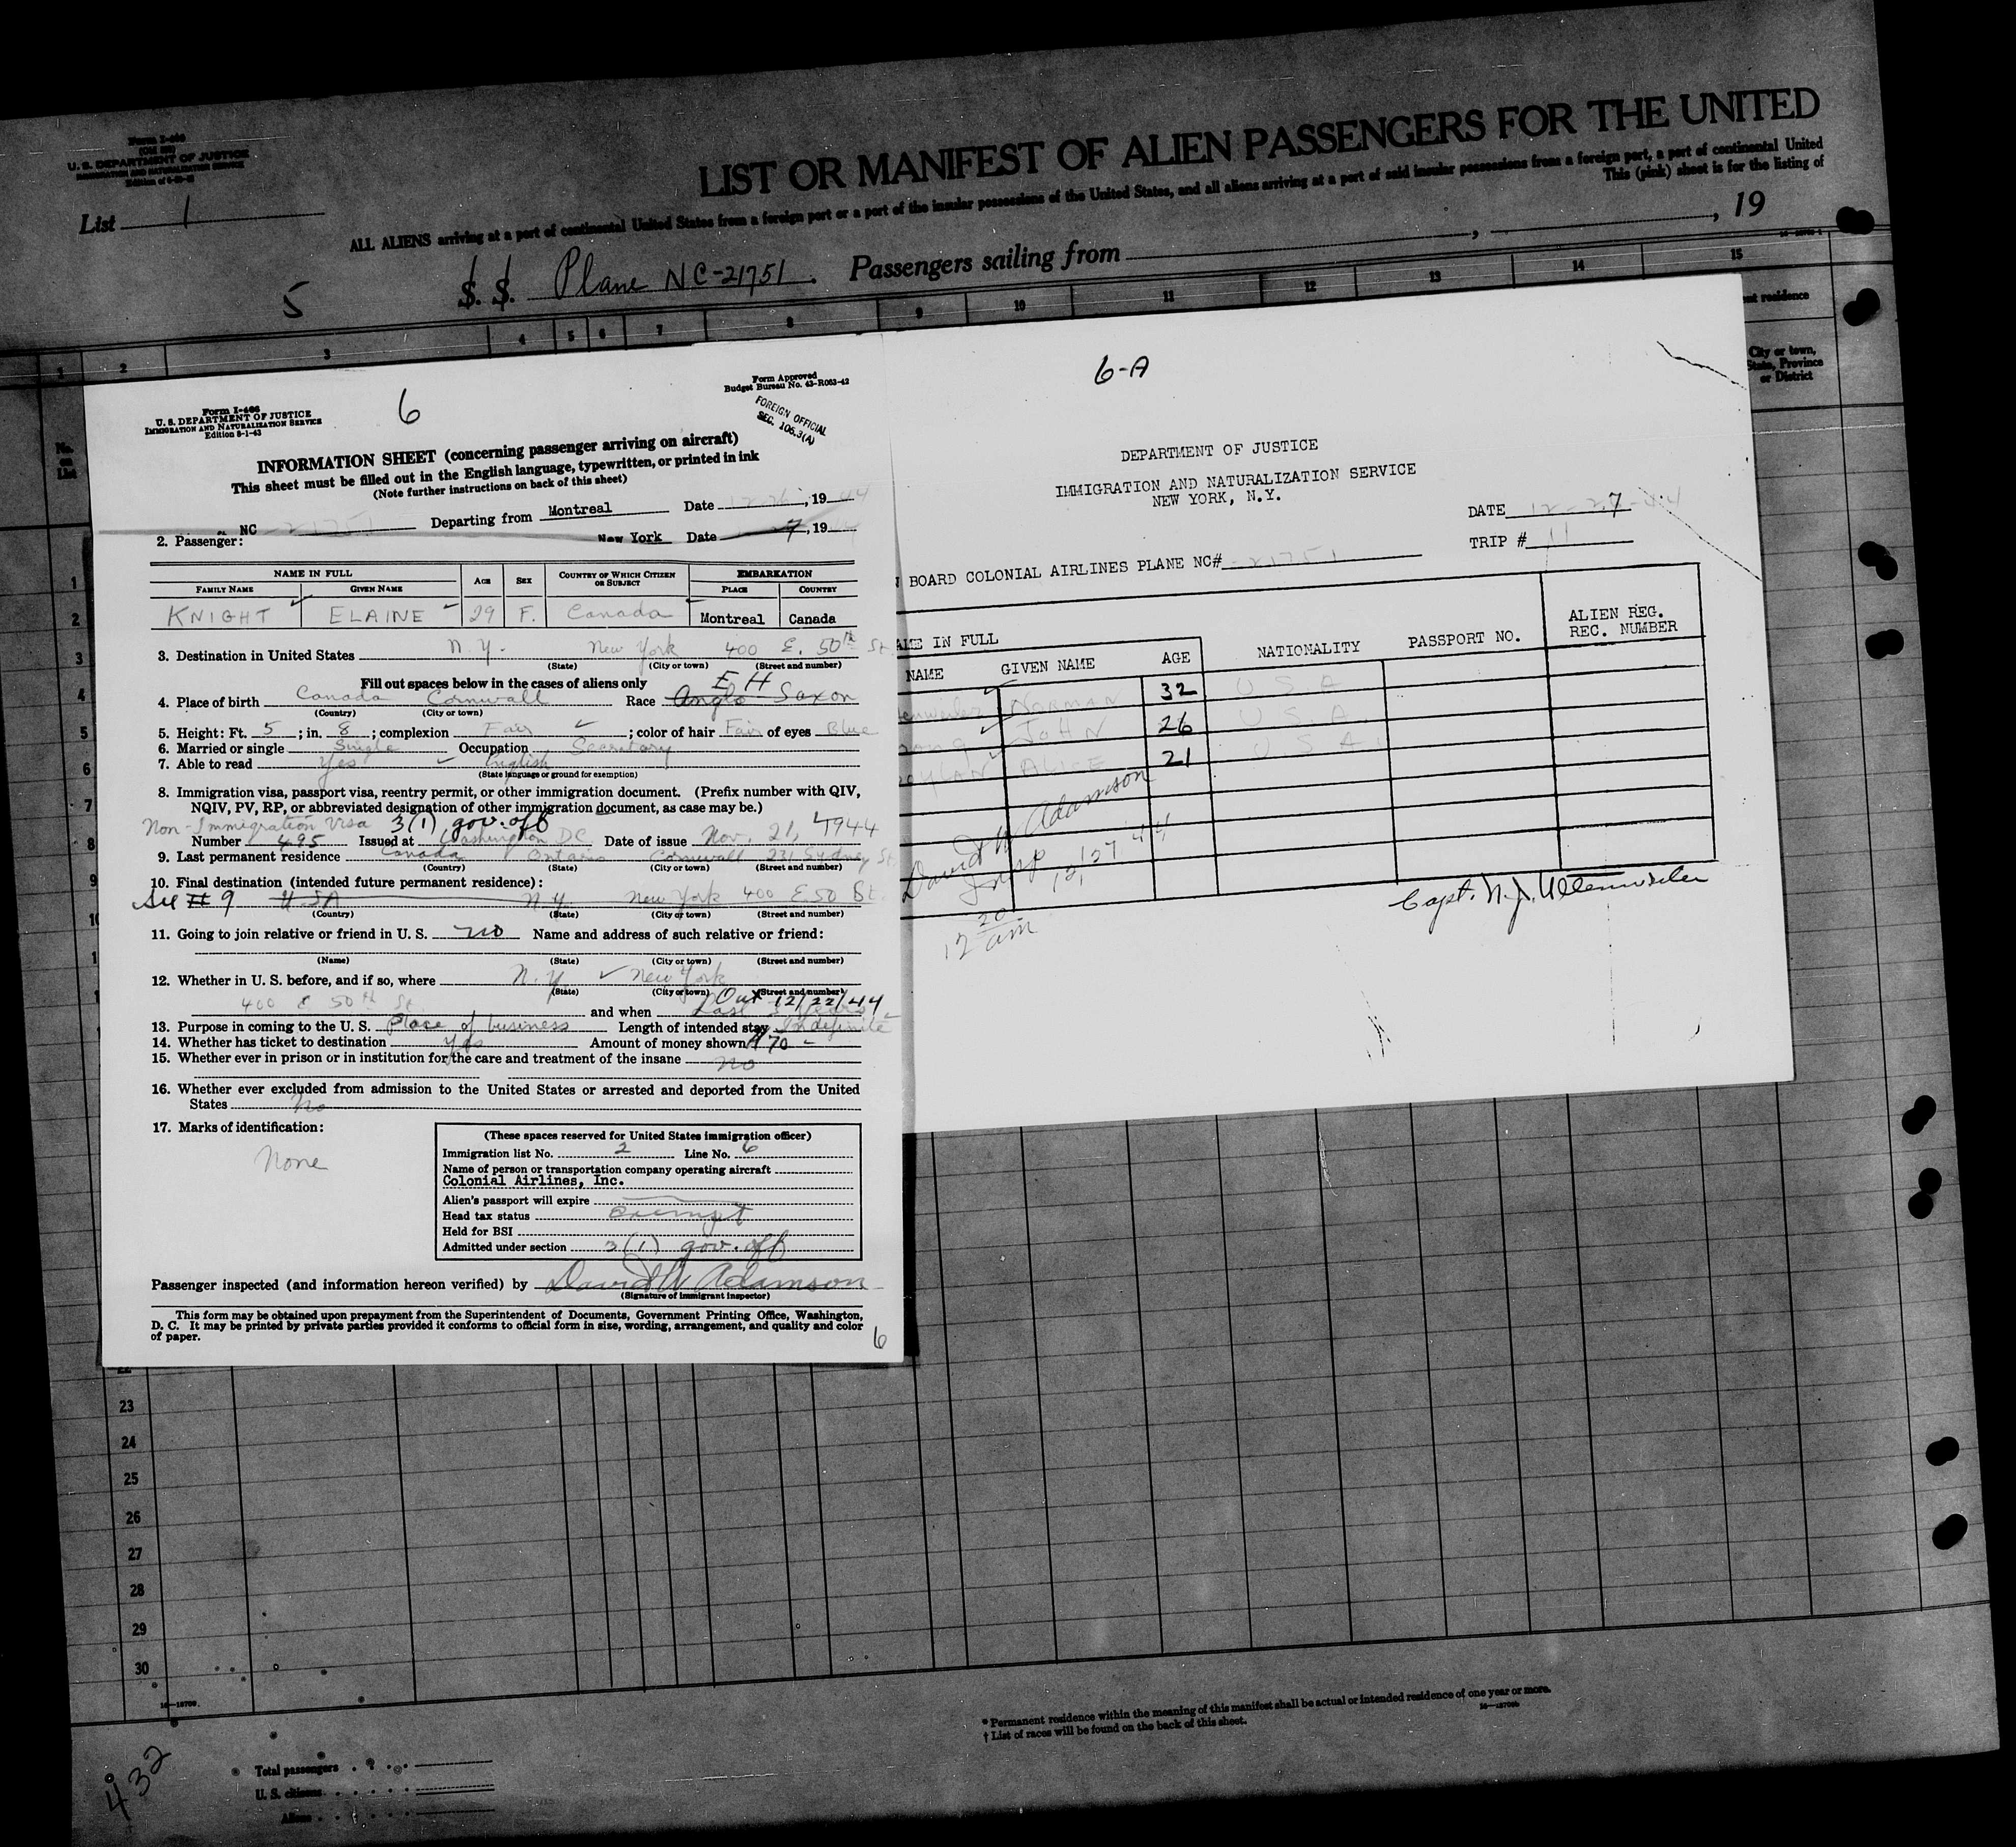 Form I-466
U. S. DEPARTMENT OF JUSTICE
IMMIGRATION AND NATURALIZATION SERVICE
List 1
LIST OR MANIFEST OF ALIEN PASSENGERS FOR THE UNITED
ALL ALIENS arriving at a port of continental United States from a foreign port or a port of the insular possessions of the United States, and all aliens arriving at a port of said insular possessions from a foreign port, a port of continental United
This (pink) sheet is for the listing of
5 S. S. Plane NC-21751. Passengers sailing from , , 19
1 2 3 4 5 6 7 8 9 10 11 12 13 14 15
No. on List
City or town, State, Province or District
Form I-466
U. S. DEPARTMENT OF JUSTICE
IMMIGRATION AND NATURALIZATION SERVICE
Edition 8-1-43
6
Form Approved
Budget Bureau No. 43-R063-42
FOREIGN OFFICIAL
SEC. 106.3(A)
INFORMATION SHEET (concerning passenger arriving on aircraft)
This sheet must be filled out in the English language, typewritten, or printed in ink
(Note further instructions on back of this sheet)
NC 21751 Departing from Montreal Date 12-26, 1944
New York Date 7, 19
2. Passenger:
NAME IN FULL AGE SEX COUNTRY OF WHICH CITIZEN OR SUBJECT EMBARKATION
FAMILY NAME GIVEN NAME PLACE COUNTRY
KNIGHT ELAINE 29 F. Canada Montreal Canada
3. Destination in United States N.Y. New York 400 E. 50th St.
(State) (City or town) (Street and number)
Fill out spaces below in the cases of aliens only
E H
4. Place of birth Canada Cornwall Race Anglo Saxon
(Country) (City or town)
5. Height: Ft. 5 ; in. 8 ; complexion Fair ; color of hair Fair of eyes Blue
6. Married or single Single Occupation Secretary
7. Able to read Yes English
(State language or ground for exemption)
8. Immigration visa, passport visa, reentry permit, or other immigration document. (Prefix number with QIV,
NQIV, PV, RP, or abbreviated designation of other immigration document, as case may be.)
Non-Immigration Visa 3(1) gov. off
Number 495 Issued at Washington DC Date of issue Nov. 21, 1944
9. Last permanent residence Canada Ontario Cornwall 231 Sydney St
(Country) (State) (City or town) (Street and number)
10. Final destination (intended future permanent residence):
See # 9 USA N.Y. New York 400 E. 50 St.
(Country) (State) (City or town) (Street and number)
11. Going to join relative or friend in U. S. no Name and address of such relative or friend:
(Name) (State) (City or town) (Street and number)
12. Whether in U. S. before, and if so, where N.Y. New York
(State) (City or town) (Street and number)
Out 12/22/44
400 E 50th St. and when Last 3 years
13. Purpose in coming to the U. S. Place of business Length of intended stay Indefinite
14. Whether has ticket to destination Yes Amount of money shown $70-
15. Whether ever in prison or in institution for the care and treatment of the insane no
16. Whether ever excluded from admission to the United States or arrested and deported from the United
States No
17. Marks of identification:
None
(These spaces reserved for United States immigration officer)
Immigration list No. 2 Line No. 6
Name of person or transportation company operating aircraft
Colonial Airlines, Inc.
Alien's passport will expire
Head tax status exempt
Held for BSI
Admitted under section 3(1) gov. off
Passenger inspected (and information hereon verified) by David W Adamson
(Signature of immigrant inspector)
This form may be obtained upon prepayment from the Superintendent of Documents, Government Printing Office, Washington,
D. C. It may be printed by private parties provided it conforms to official form in size, wording, arrangement, and quality and color
of paper.
6
6-A
DEPARTMENT OF JUSTICE
IMMIGRATION AND NATURALIZATION SERVICE
NEW YORK, N.Y.
DATE 12-27-44
TRIP # 11
BOARD COLONIAL AIRLINES PLANE NC# 21751
NAME IN FULL
NAME GIVEN NAME AGE NATIONALITY PASSPORT NO. ALIEN REG. REC. NUMBER
NORMAN 32 U S A
JOHN 26 U.S.A.
ALICE 21 U S A
David W Adamson
Insp
12/27/44
12 20 am
Capt. N. J. Ullenweiler
1
2
3
4
5
6
7
8
9
10
23
24
25
26
27
28
29
30
* Permanent residence within the meaning of this manifest shall be actual or intended residence of one year or more.
† List of races will be found on the back of this sheet.
Total passengers
U. S. citizens
Aliens
432